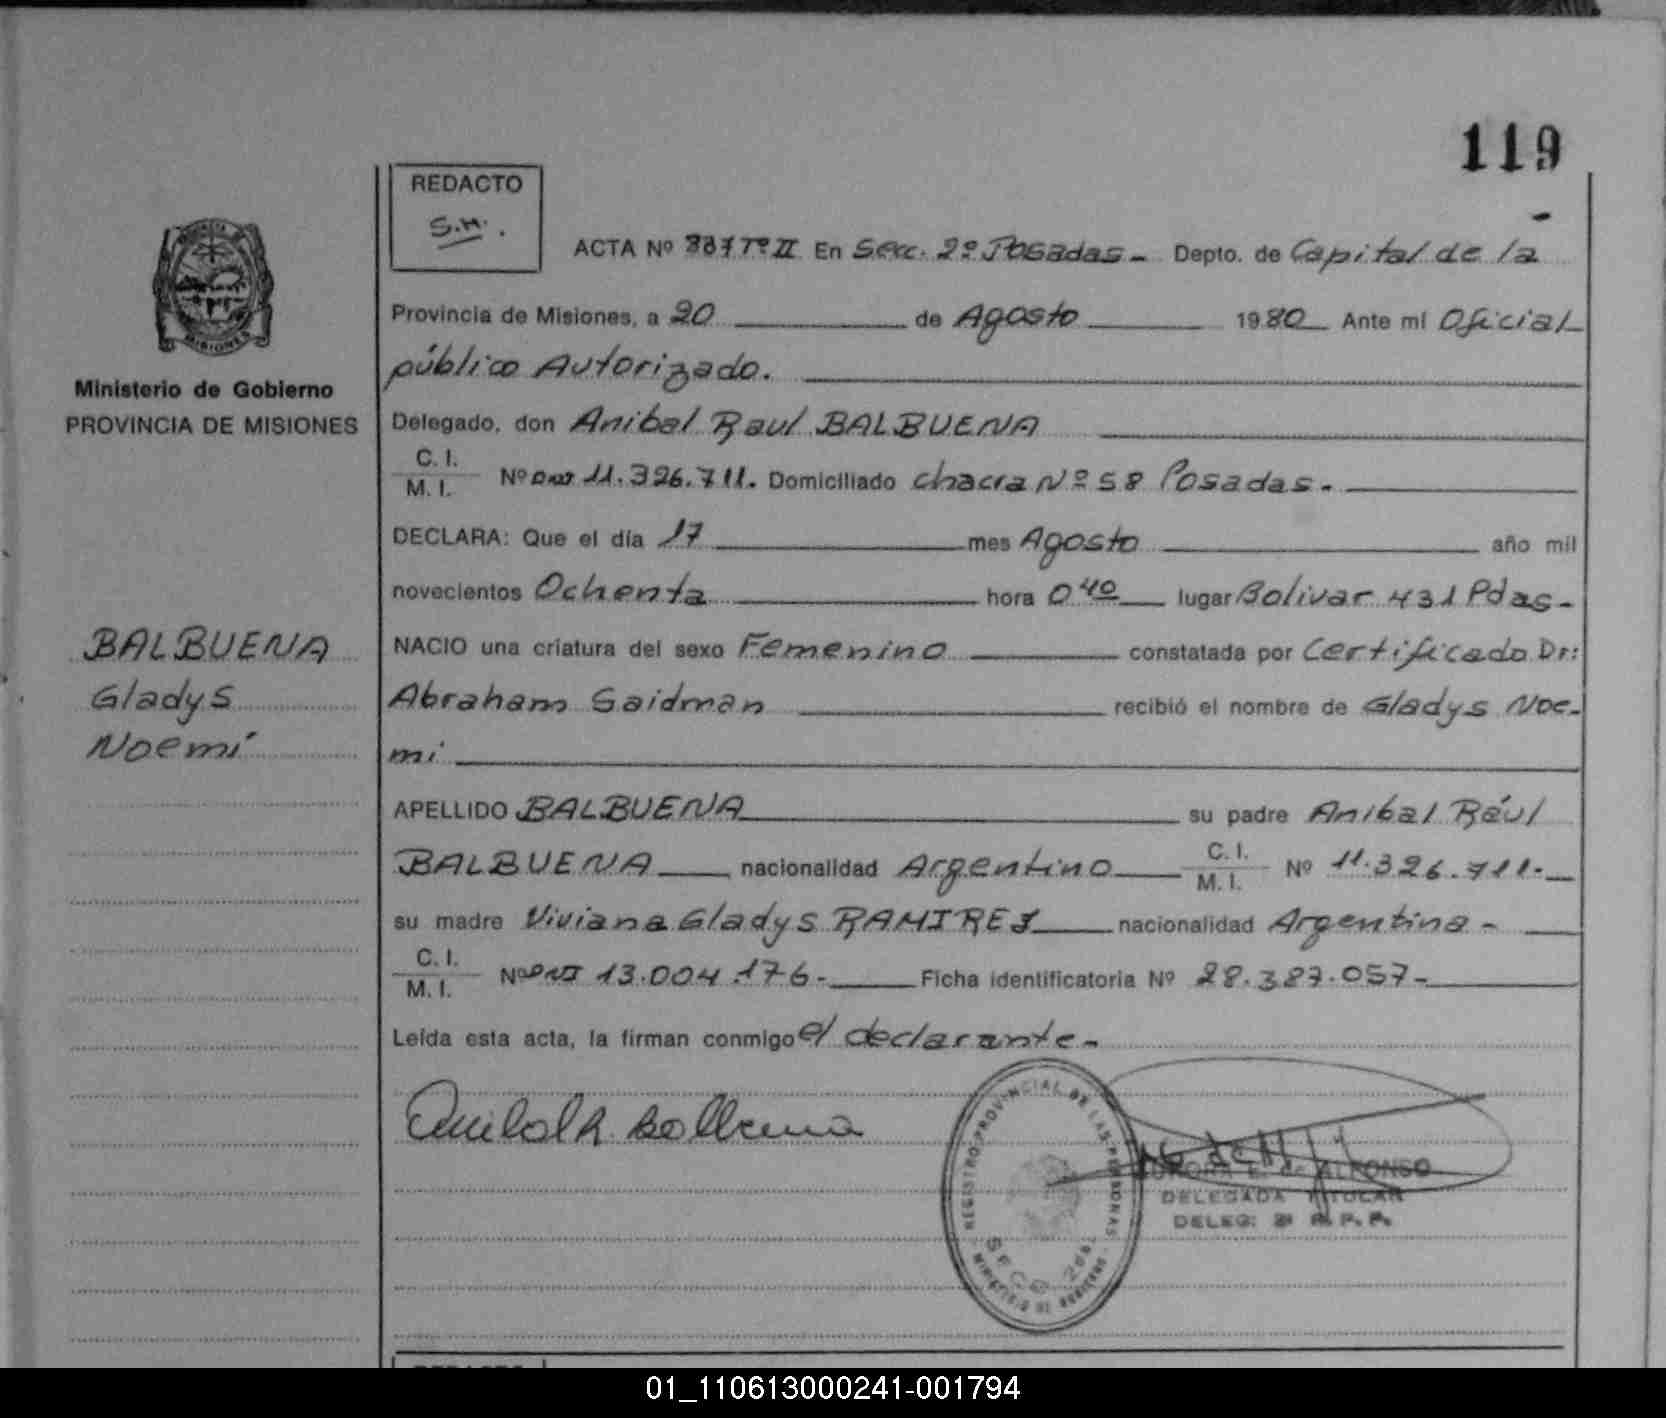 119
REDACTO
S.H.
ACTA Nº 387 Tº II En Secc. 2º Posadas - Depto. de Capital de la
Provincia de Misiones, a 20 de Agosto 1980 Ante mi Oficial
público Autorizado.
Ministerio de Gobierno
PROVINCIA DE MISIONES
Delegado, don Anibal Raul BALBUENA
C. I.
M. I. Nº DNI 11.326.711. Domiciliado chacra Nº 58 Posadas.
DECLARA: Que el día 17 mes Agosto año mil
novecientos Ochenta hora 0 40 lugar Bolivar 431 Pdas-
NACIO una criatura del sexo Femenino constatada por Certificado Dr:
Abraham Saidman recibió el nombre de Gladys Noe-
mi
BALBUENA
Gladys
Noemí
APELLIDO BALBUENA su padre Anibal Rául
BALBUENA nacionalidad Argentino C. I.
M. I. Nº 11.326.711-
su madre Viviana Gladys RAMIREZ nacionalidad Argentina -
C. I.
M. I. Nº DNI 13.004.176- Ficha identificatoria Nº 28.387.057-
Leída esta acta, la firman conmigo el declarante-
Anibal R. Balbuena
REGISTRO PROVINCIAL DE LAS PERSONAS
MINISTERIO DE GOBIERNO
AURORA E. de ALFONSO
DELEGADA TITULAR
DELEG: 2ª R. P. P.
REDACTO
01_110613000241-001794